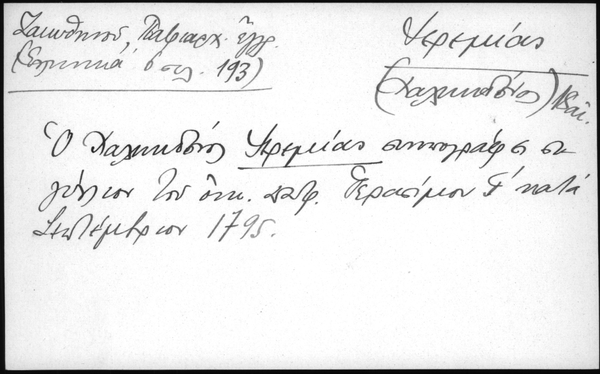 Ζακυθηνοῦ, Πατριαρχ. ἔγγρ.
(Ἑλληνικά, 6 σελ. 193)
Ἱερεμίας
(Χαλκηδόνος) 18 αἰ.
Ὁ Χαλκηδόνος Ἱερεμίας συνυπογράφει σι-
γίλλιον τοῦ οἰκ. πατρ. Γερασίμου Γ' κατὰ
Σεπτέμβριον 1795.